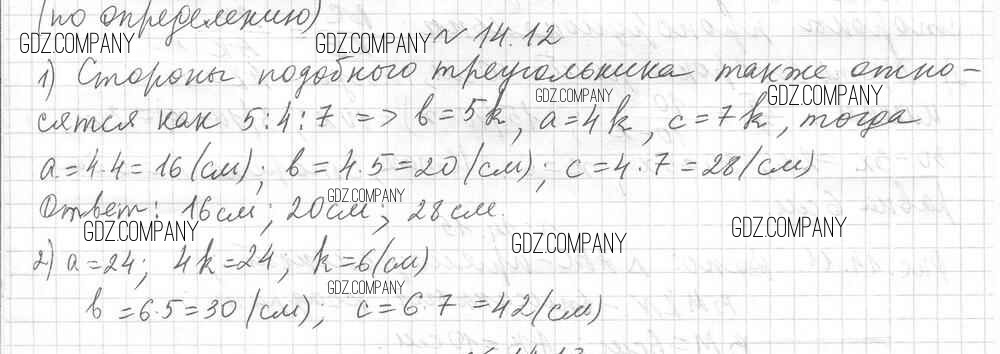 (по определению)
GDZ.COMPANY GDZ.COMPANY № 14.12
1) Стороны подобного треугольника также отно-
GDZ.COMPANY GDZ.COMPANY
сятся как 5:4:7 => b=5k, a=4k, c=7k, тогда
a=4·4=16(см); b=4·5=20(см); c=4·7=28(см)
GDZ.COMPANY
Ответ: 16см; 20см; 28см.
GDZ.COMPANY GDZ.COMPANY GDZ.COMPANY
2) a=24; 4k=24, k=6(см)
GDZ.COMPANY
b=6·5=30(см); c=6·7=42(см)